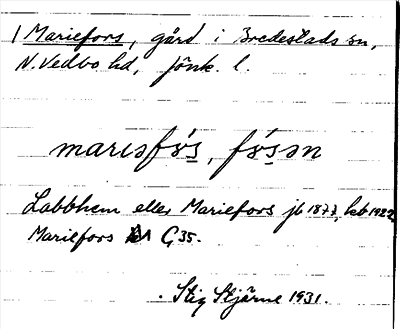 Mariefors, gård i Bredestads sn,
N. Vedbo hd, Jönk. l.
marɩsfɤ́s, fɤ́sən
Labbhem eller Mariefors jb 1877, kb 1922,
Mariefors G 35.
Stig Stjärne 1931.